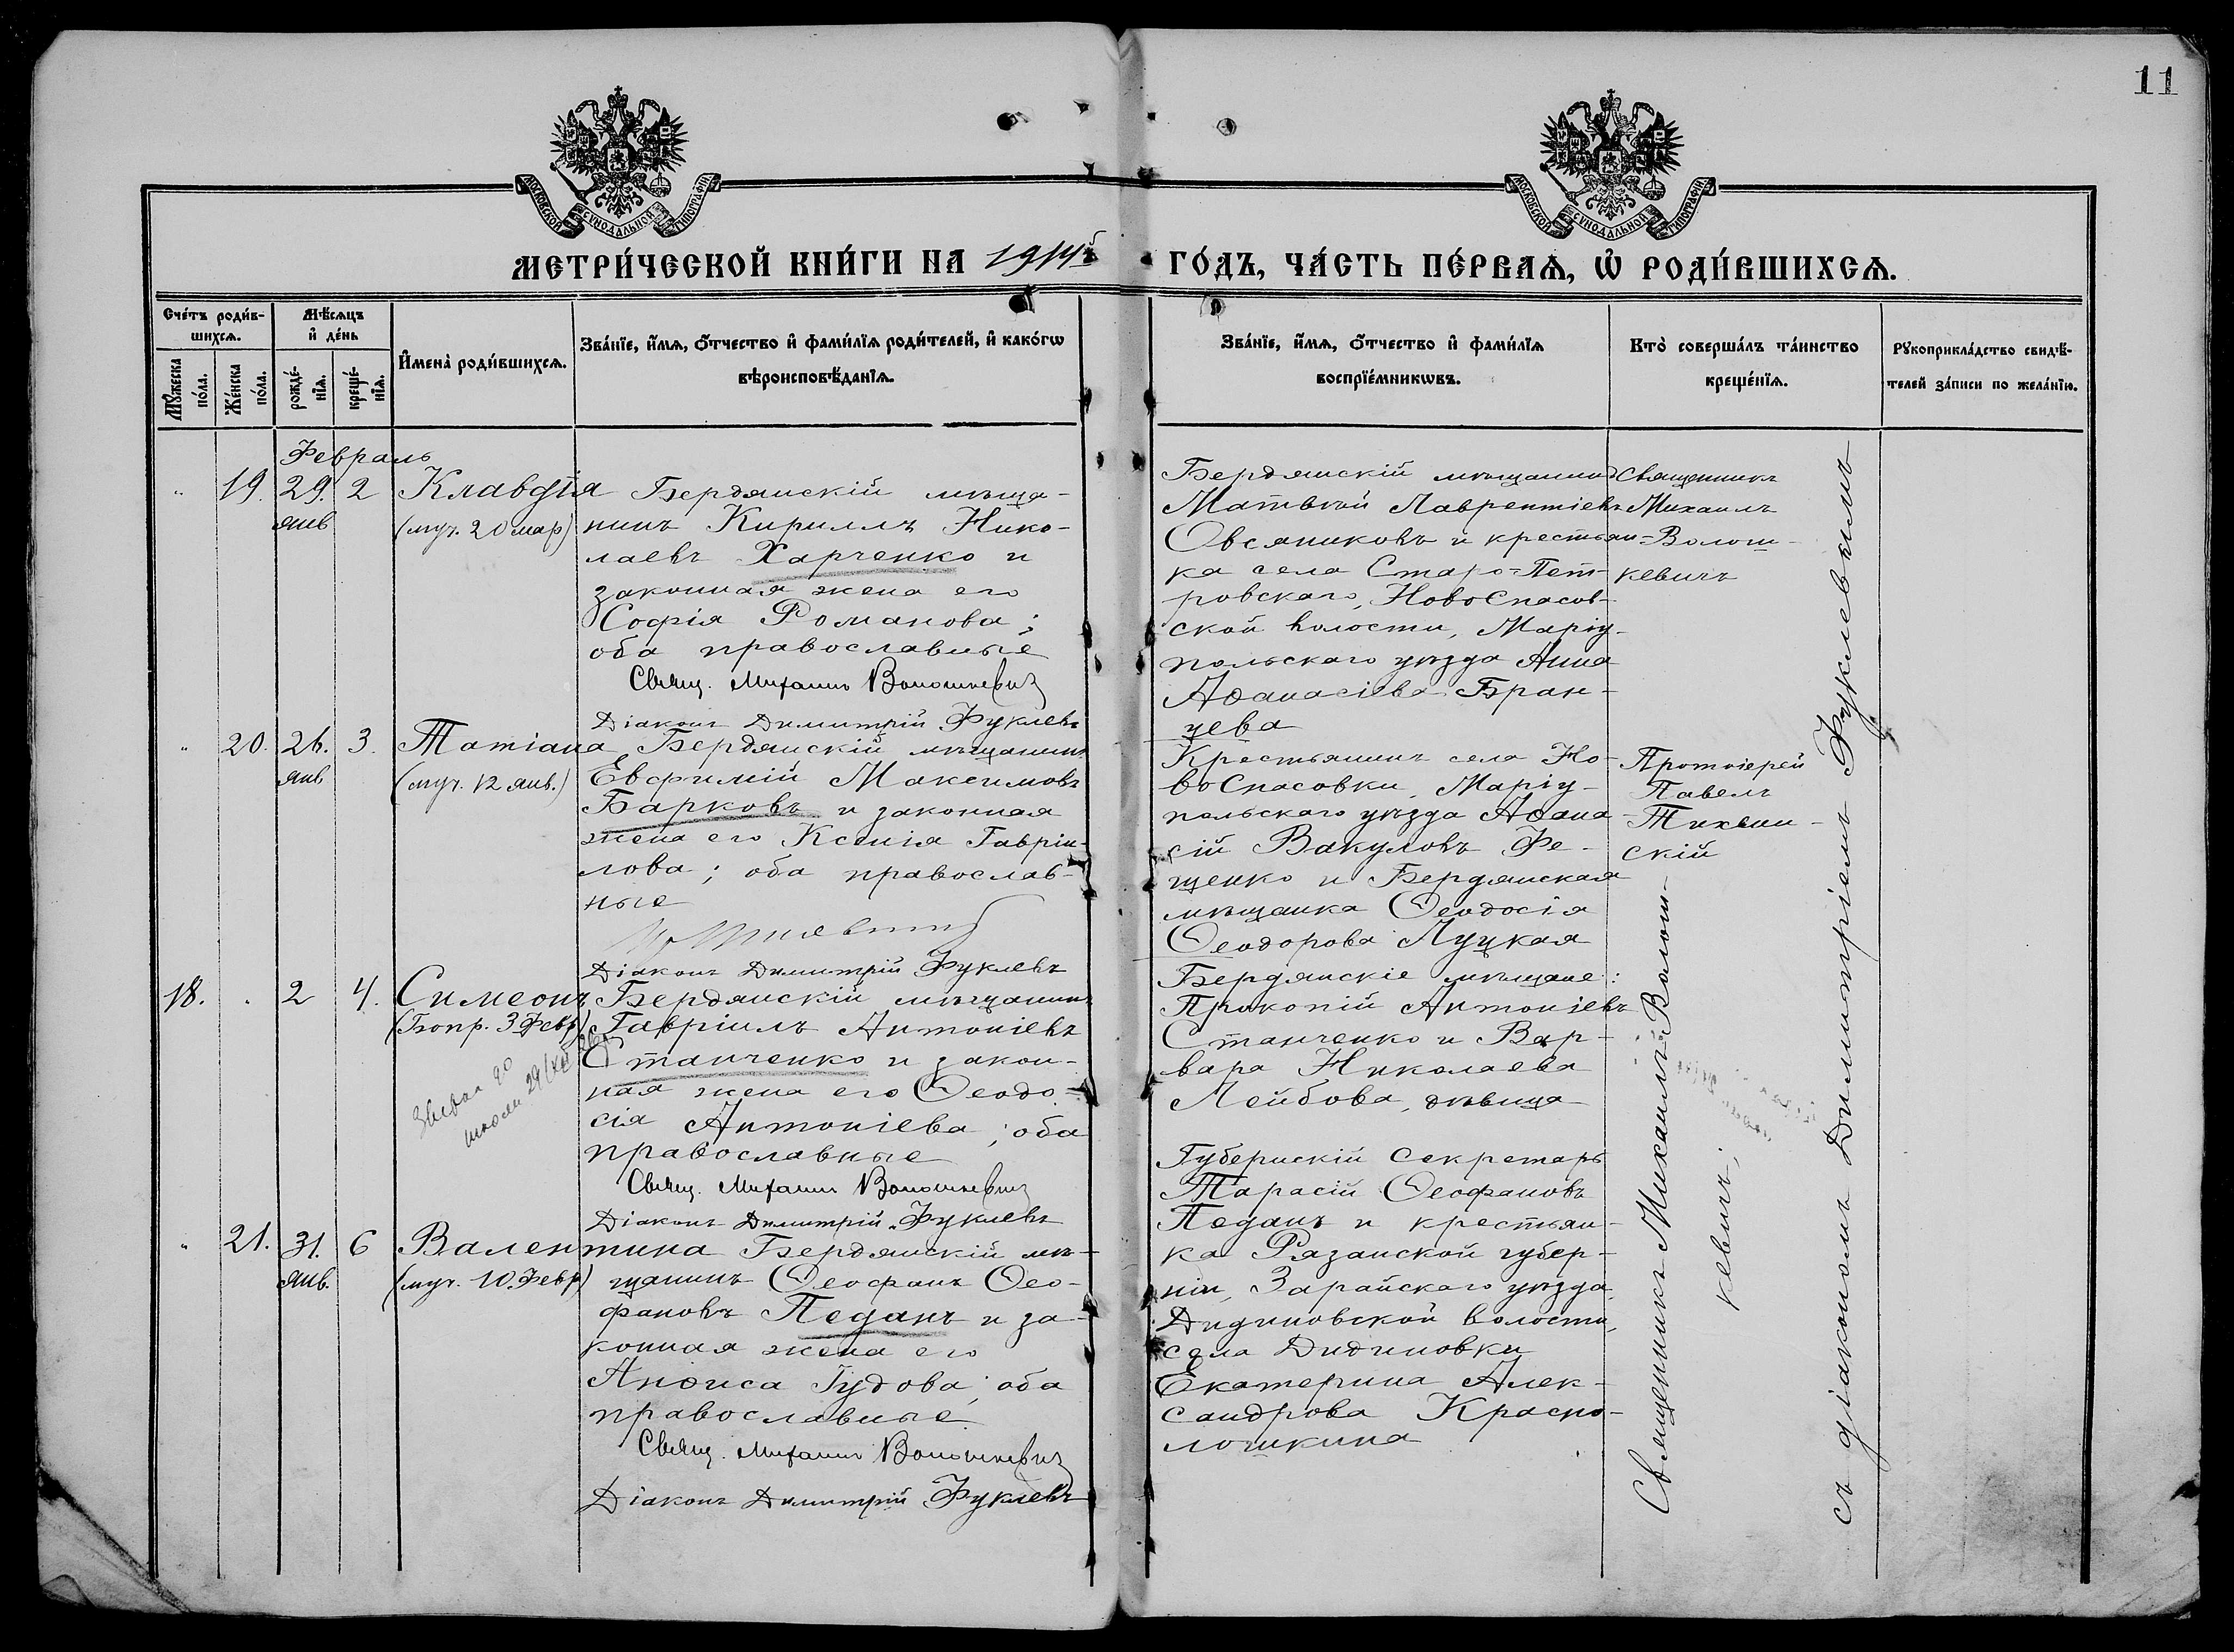 11
МОСКОВСКОЙ СѴНОДАЛЬНОЙ ТИПОГРАФІИ
МОСКОВСКОЙ СѴНОДАЛЬНОЙ ТИПОГРАФІИ
МЕТРИ́ЧЕСКОЙ КНИ́ГИ НА 1914й ГО́ДЪ, ЧА́СТЬ ПЕ́РВАѦ, Ѽ РОДИ́ВШИХСѦ.
Сче́тъ роди́в-
шихсѧ.
Мꙋ́жеска
по́ла.
Же́нска
по́ла.
Мѣ́сѧцъ
и҆ де́нь
рожде́-
нїѧ.
креще́-
нїѧ.
И҆мена̀ роди́вшихсѧ.
Зва́нїе, и҆́мѧ, ѻ҆́тчество и҆ фами́лїѧ роди́телей, и҆ како́гѡ
вѣроисповѣ́данїѧ.
Зва́нїе, и҆́мѧ, ѻ҆́тчество и҆ фами́лїѧ
воспрїе́мникѡвъ.
Кто̀ соверша́лъ та́инство
креще́нїѧ.
Рꙋкоприкла́дство свидѣ́-
телей за́писи по жела́нїю.
Февраль
19. 29. 2 Клавдія
янв
(муч. 20 мар)
Бердянскій мѣща-
нинъ Кириллъ Нико-
лаевъ Харченко и
законная жена его
Софія Романова;
оба православные
Свящ. Михаилъ Волошкевичъ
Діаконъ Димитрій Фуклевъ
Бердянскій мѣщанинъ
Матвѣй Лаврентіевъ
Овсяниковъ и крестьян-
ка села Старо-Пет-
ровскаго, НовоСпасов-
ской волости, Маріу-
польскаго уѣзда Анна
Аѳанасіева Бран-
цева
Священникъ
Михаилъ
Волош-
кевичъ
20. 26. 3. Татіана
янв
(муч. 12 янв.)
Бердянскій мѣщанинъ
Евфимій Максимовъ
Барковъ и законная
жена его Ксенія Гавріи-
лова; оба православ-
ные
Діаконъ Димитрій Фуклевъ
Крестьянинъ села Но-
воСпасовки, Маріу-
польскаго уѣзда Аѳана-
сій Вакуловъ Фе-
щенко и Бердянская
мѣщанка Ѳеодосія
Ѳеодорова Луцкая
Протоіерей
Павелъ
Тихвин-
скій
18. 2 4. Симеонъ
(Бопр. 3 Февр)
Бердянскій мѣщанинъ
Гавріилъ Антоніевъ
Станченко и закон-
ная жена его Ѳеодо-
сія Антоніева; оба
православные
Свящ. Михаилъ Волошкевичъ
Діаконъ Димитрій Фуклевъ
Бердянскіе мѣщане:
Прокопій Антоніевъ
Станченко и Вар-
вара Николаева
Лейбова, дѣвица
21. 31. 6 Валентина
янв.
(муч. 10. Февр)
Бердянскій мѣ-
щанинъ Ѳеофанъ Ѳео-
фановъ Педанъ и за-
конная жена его
Анѳиса Гудова; оба
православные
Свящ. Михаилъ Волошкевичъ
Діаконъ Димитрій Фуклевъ
Губернскій Секретарь
Тарасій Ѳеофановъ
Педанъ и крестьян-
ка Рязанской губер-
ніи, Зарайскаго уѣзда,
Дидиновской волости,
села Дидиновки
Екатерина Алек-
сандрова Красно-
лошкина
Священникъ Михаилъ Волош-
кевичъ;
съ діакономъ Димитріемъ Фуклевымъ